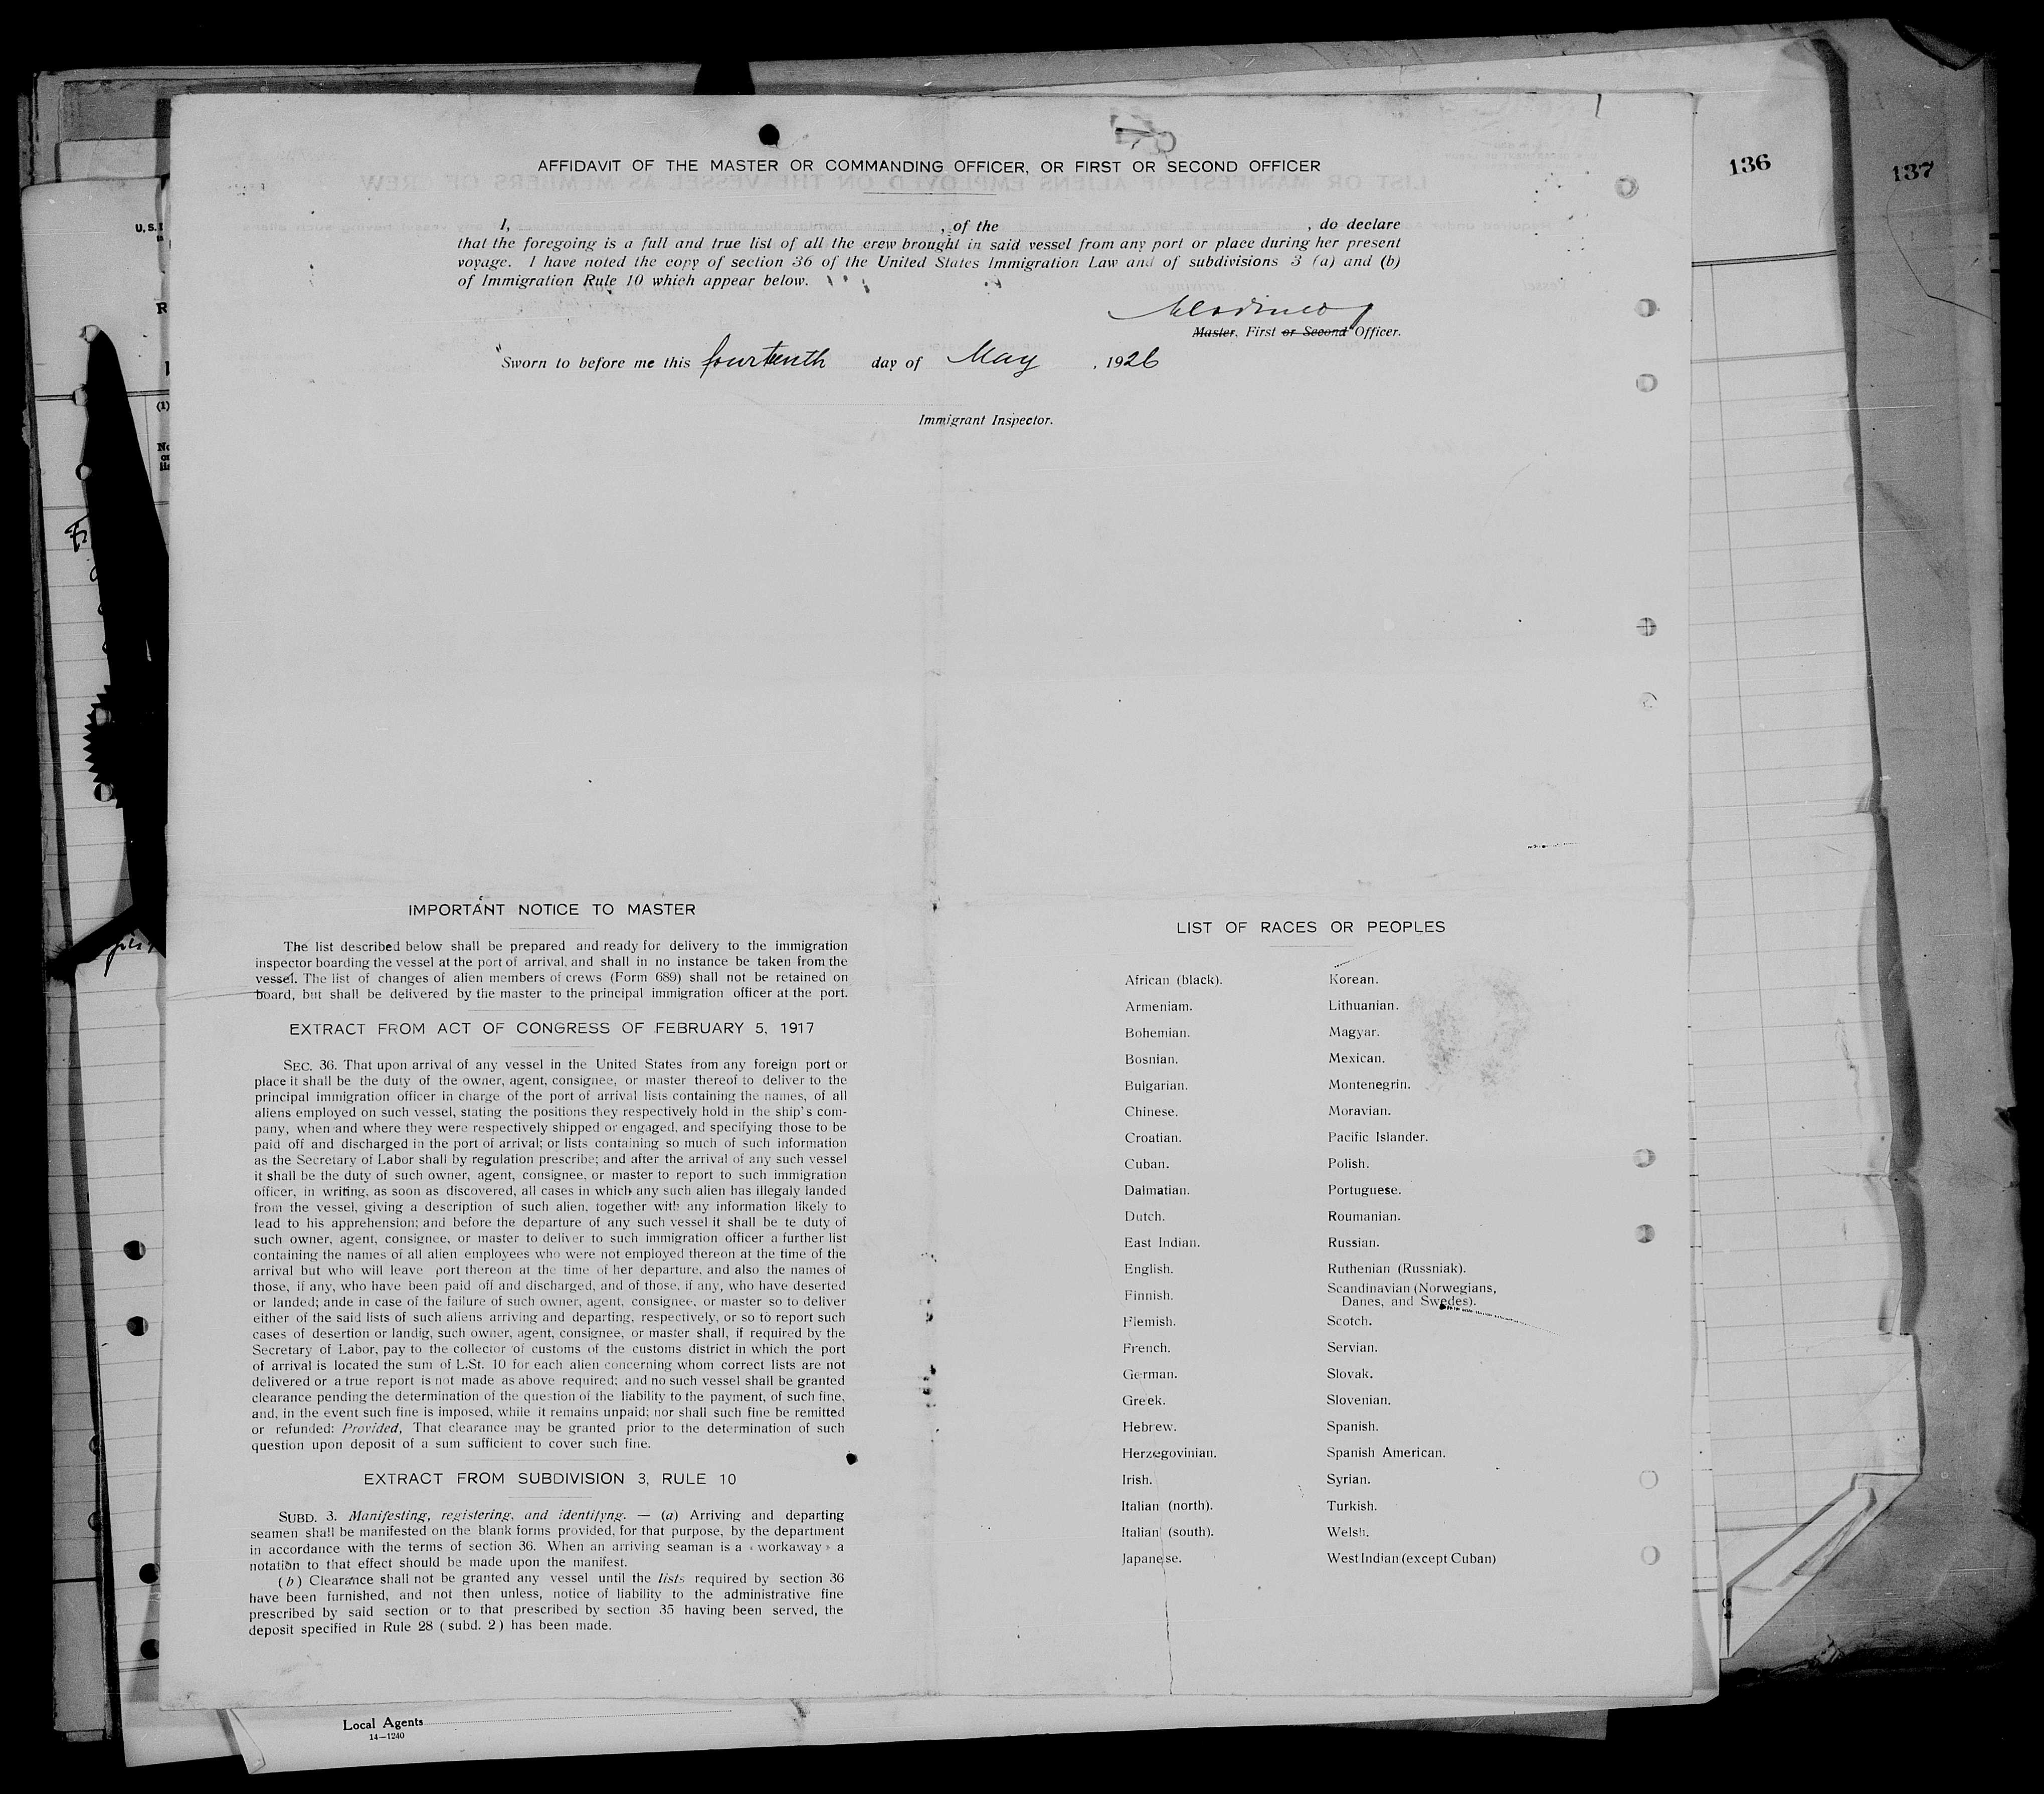 136
137
AFFIDAVIT OF THE MASTER OR COMMANDING OFFICER, OR FIRST OR SECOND OFFICER
I, , of the , do declare
that the foregoing is a full and true list of all the crew brought in said vessel from any port or place during her present
voyage. I have noted the copy of section 36 of the United States Immigration Law and of subdivisions 3 (a) and (b)
of Immigration Rule 10 which appear below.
Master, First or Second Officer.
Sworn to before me this fourteenth day of May , 1926
Immigrant Inspector.
IMPORTANT NOTICE TO MASTER
The list described below shall be prepared and ready for delivery to the immigration
inspector boarding the vessel at the port of arrival, and shall in no instance be taken from the
vessel. The list of changes of alien members of crews (Form 689) shall not be retained on
board, but shall be delivered by the master to the principal immigration officer at the port.
EXTRACT FROM ACT OF CONGRESS OF FEBRUARY 5, 1917
SEC. 36. That upon arrival of any vessel in the United States from any foreign port or
place it shall be the duty of the owner, agent, consignee, or master thereof to deliver to the
principal immigration officer in charge of the port of arrival lists containing the names, of all
aliens employed on such vessel, stating the positions they respectively hold in the ship's com-
pany, when and where they were respectively shipped or engaged, and specifying those to be
paid off and discharged in the port of arrival; or lists containing so much of such information
as the Secretary of Labor shall by regulation prescribe; and after the arrival of any such vessel
it shall be the duty of such owner, agent, consignee, or master to report to such immigration
officer, in writing, as soon as discovered, all cases in which any such alien has illegaly landed
from the vessel, giving a description of such alien, together with any information likely to
lead to his apprehension; and before the departure of any such vessel it shall be te duty of
such owner, agent, consignee, or master to deliver to such immigration officer a further list
containing the names of all alien employees who were not employed thereon at the time of the
arrival but who will leave port thereon at the time of her departure, and also the names of
those, if any, who have been paid off and discharged, and of those, if any, who have deserted
or landed; ande in case of the failure of such owner, agent, consignee, or master so to deliver
either of the said lists of such aliens arriving and departing, respectively, or so to report such
cases of desertion or landig, such owner, agent, consignee, or master shall, if required by the
Secretary of Labor, pay to the collector of customs of the customs district in which the port
of arrival is located the sum of L.St. 10 for each alien concerning whom correct lists are not
delivered or a true report is not made as above required; and no such vessel shall be granted
clearance pending the determination of the question of the liability to the payment, of such fine,
and, in the event such fine is imposed, while it remains unpaid; nor shall such fine be remitted
or refunded: Provided, That clearance may be granted prior to the determination of such
question upon deposit of a sum sufficient to cover such fine.
EXTRACT FROM SUBDIVISION 3, RULE 10
SUBD. 3. Manifesting, registering, and identifyng. — (a) Arriving and departing
seamen shall be manifested on the blank forms provided, for that purpose, by the department
in accordance with the terms of section 36. When an arriving seaman is a « workaway » a
notation to that effect should be made upon the manifest.
(b) Clearance shall not be granted any vessel until the lists required by section 36
have been furnished, and not then unless, notice of liability to the administrative fine
prescribed by said section or to that prescribed by section 35 having been served, the
deposit specified in Rule 28 (subd. 2) has been made.
LIST OF RACES OR PEOPLES
African (black).
Armeniam.
Bohemian.
Bosnian.
Bulgarian.
Chinese.
Croatian.
Cuban.
Dalmatian.
Dutch.
East Indian.
English.
Finnish.
Flemish.
French.
German.
Greek.
Hebrew.
Herzegovinian.
Irish.
Italian (north).
Italian (south).
Japanese.
Korean.
Lithuanian.
Magyar.
Mexican.
Montenegrin.
Moravian.
Pacific Islander.
Polish.
Portuguese.
Roumanian.
Russian.
Ruthenian (Russniak).
Scandinavian (Norwegians,
Danes, and Swedes).
Scotch.
Servian.
Slovak.
Slovenian.
Spanish.
Spanish American.
Syrian.
Turkish.
Welsh.
West Indian (except Cuban)
Local Agents
14—1240